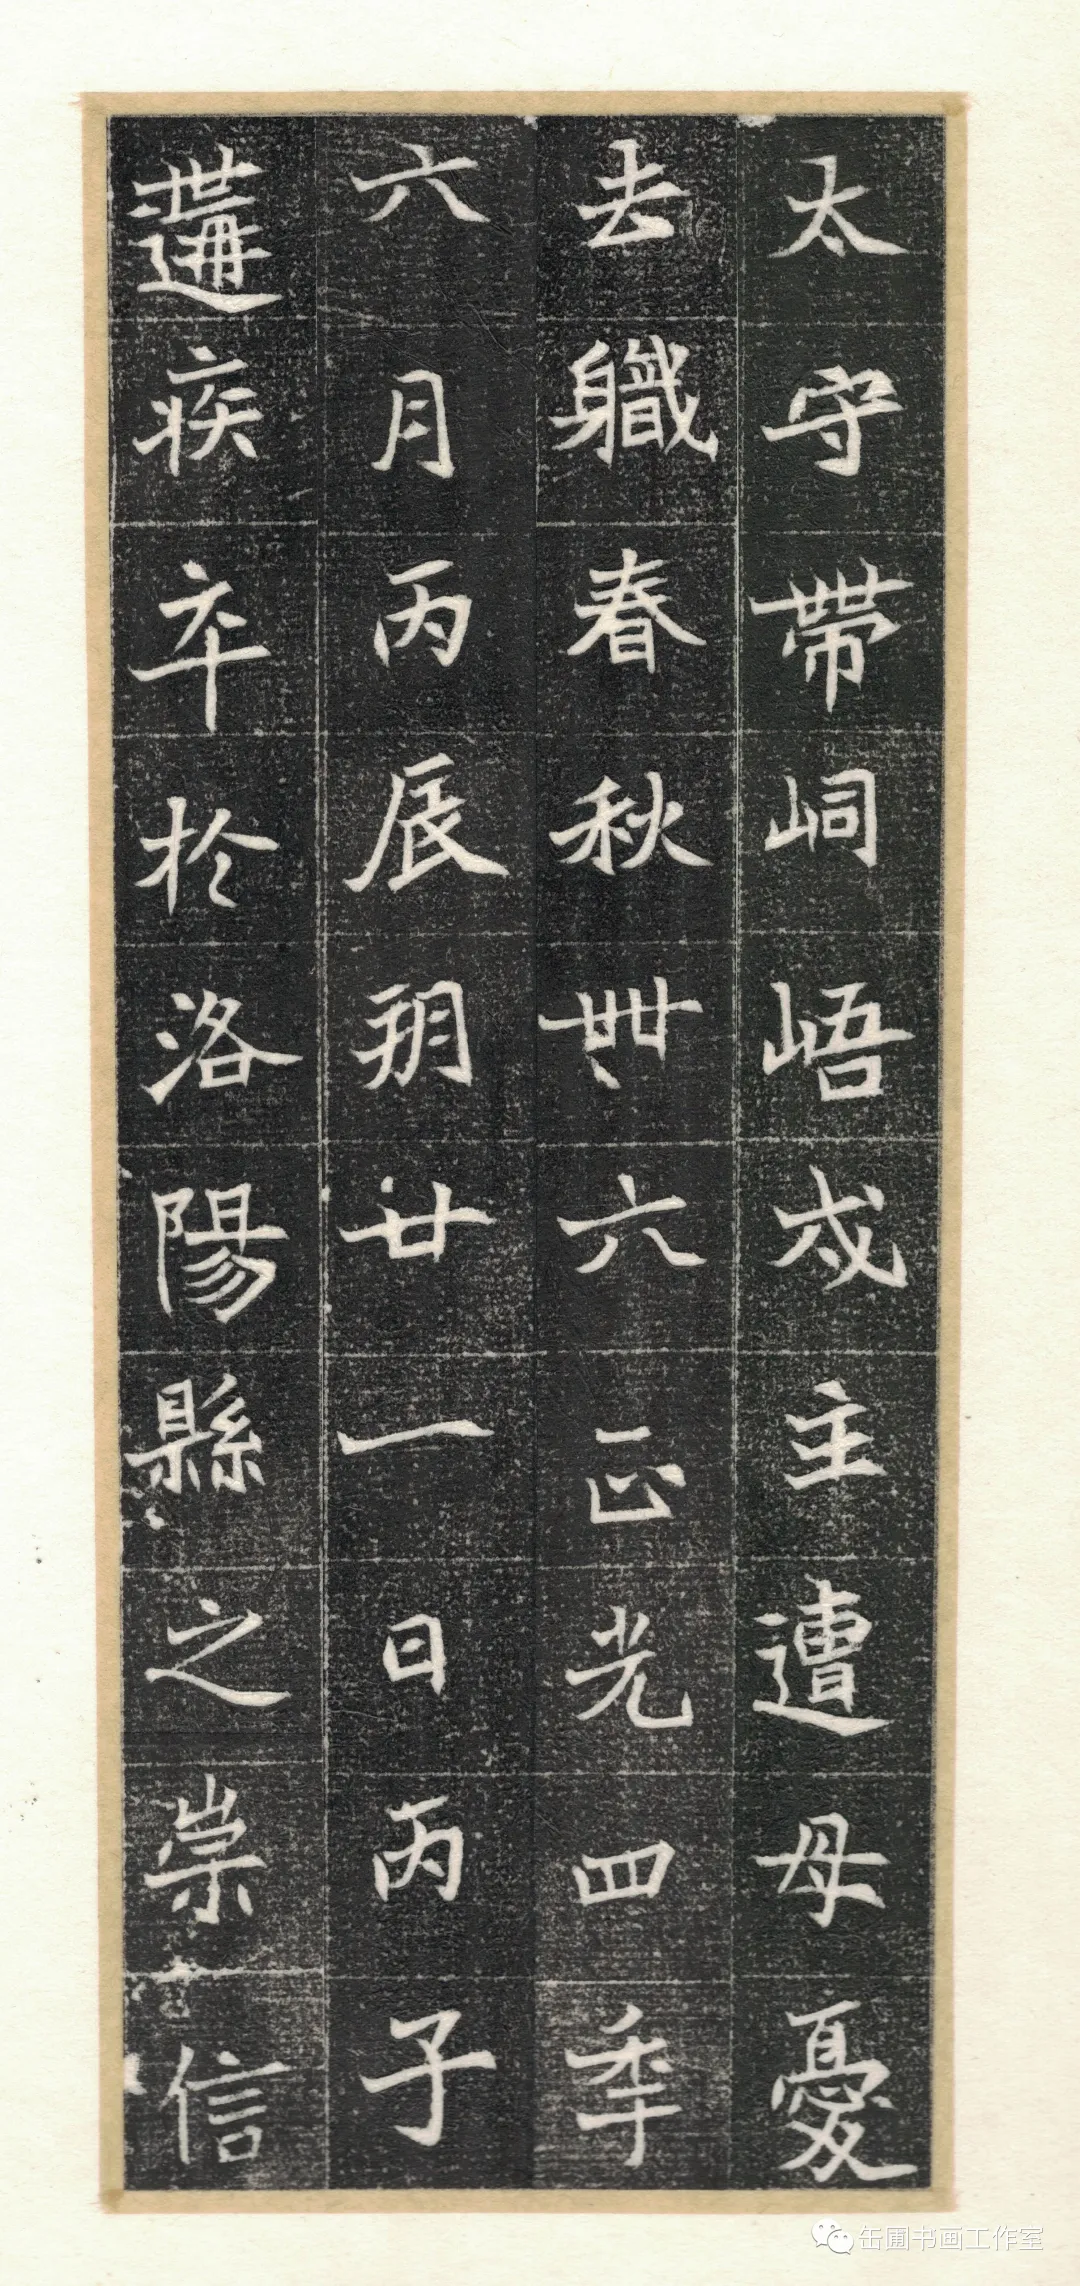 太守帶峒峿戍主遭母憂
去軄春秋卌六正光四年
六月丙辰玥廿一日丙子
遘疾卒於洛陽縣之崇信
缶圃书画工作室